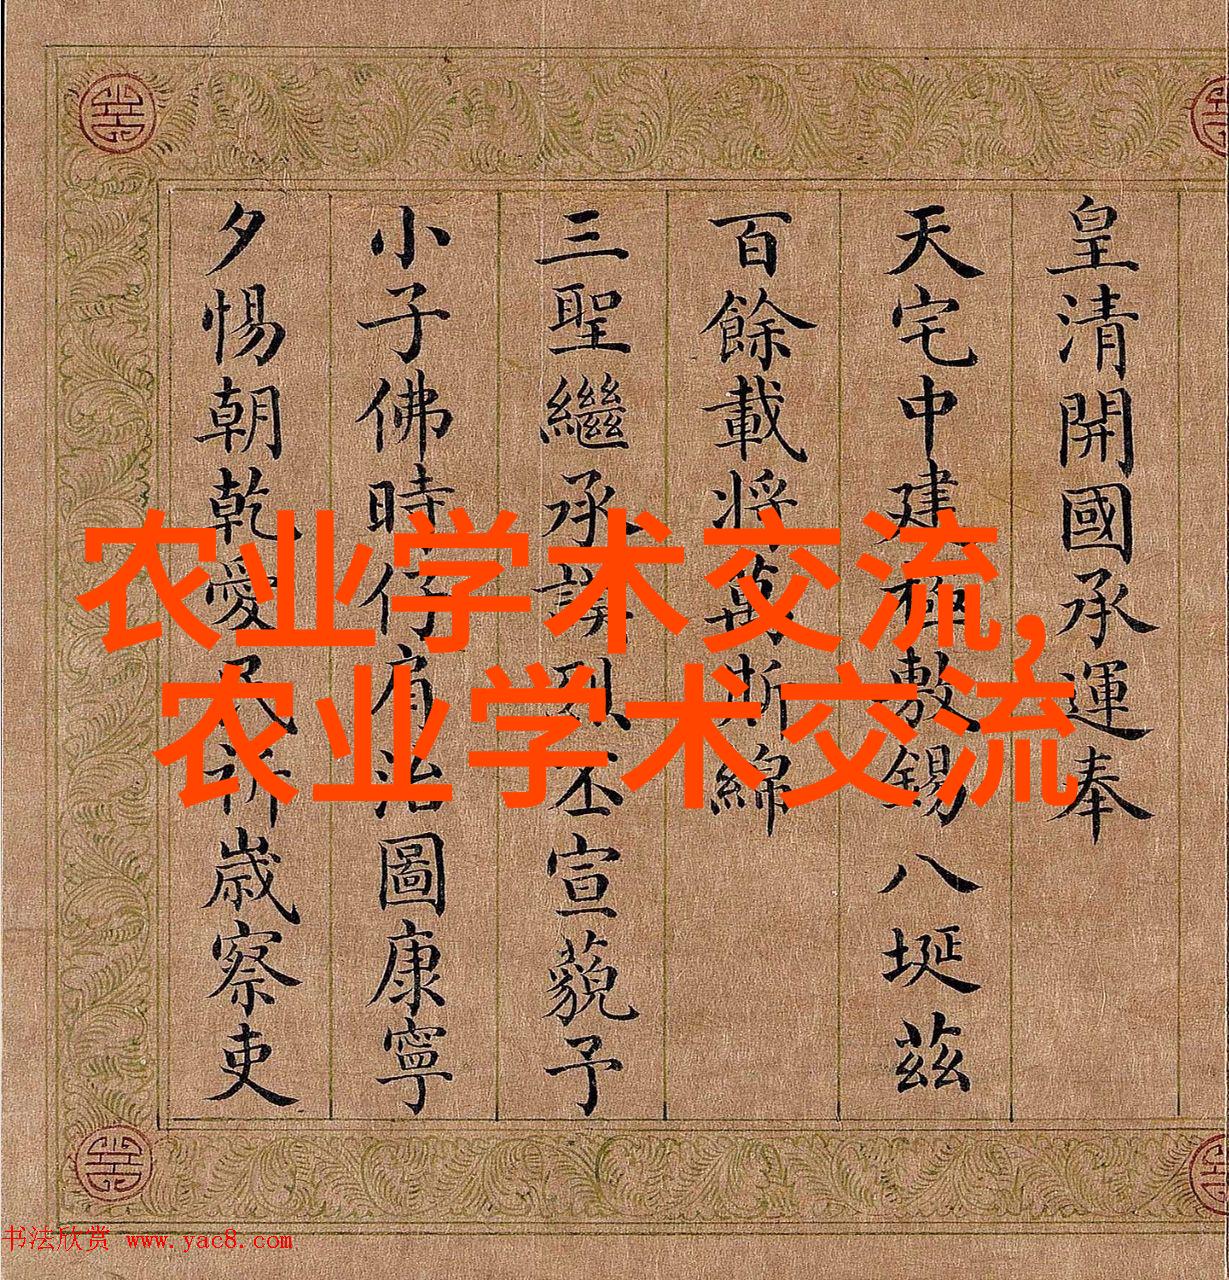 皇清開國承運奉
天宅中建極敷錫八埏茲
百餘載將萬斯綿
三聖繼承謨烈丕宣藐予
小子佛時仔肩治圖康寧
夕惕朝乾愛民祈歲察吏
农业学术交流,
农业学术交流
书法欣赏 www.yac8.com